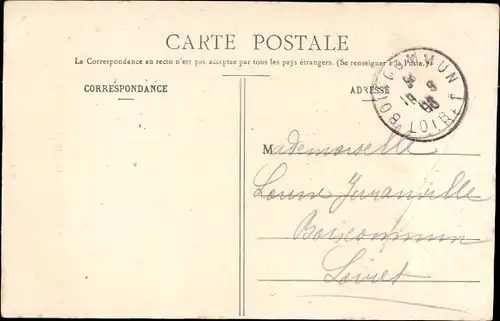 CARTE POSTALE
La Correspondance au recto n'est pas acceptée par tous les pays étrangers. (Se renseigner à la Poste.)
CORRESPONDANCE
ADRESSE
BOISCOMMUN
LOIRET
Mademoiselle
Louise Juranville
Boiscommun
Loiret